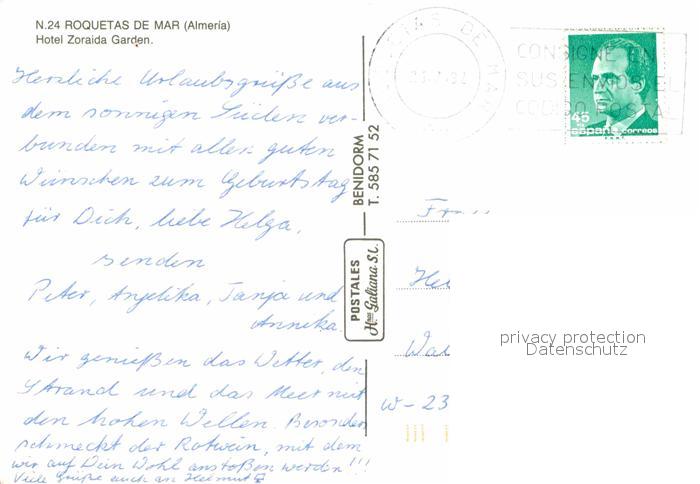 N.24 ROQUETAS DE MAR (Almería)
Hotel Zoraida Garden.
Herzliche Urlaubsgrüße aus
dem sonnigen Süden ver-
bunden mit allen guten
Wünschen zum Geburtstag
für Dich, liebe Helga,
senden
Peter, Angelika, Tanja und
Annika.
Wir genießen das Wetter, den
Strand und das Meer mit
den hohen Wellen. Besonders
schmeckt der Rotwein, mit dem
wir auf Dein Wohl anstoßen werden!!!
Viele Grüße auch an Helmut
BENIDORM
T. 585 71 52
POSTALES
Hnos Galiana S.L.
ROQUETAS DE MAR
CONSIGNE EN
SUS ENVIOS EL
CODIGO POSTAL
45
españa correos
W-23
privacy protection
Datenschutz